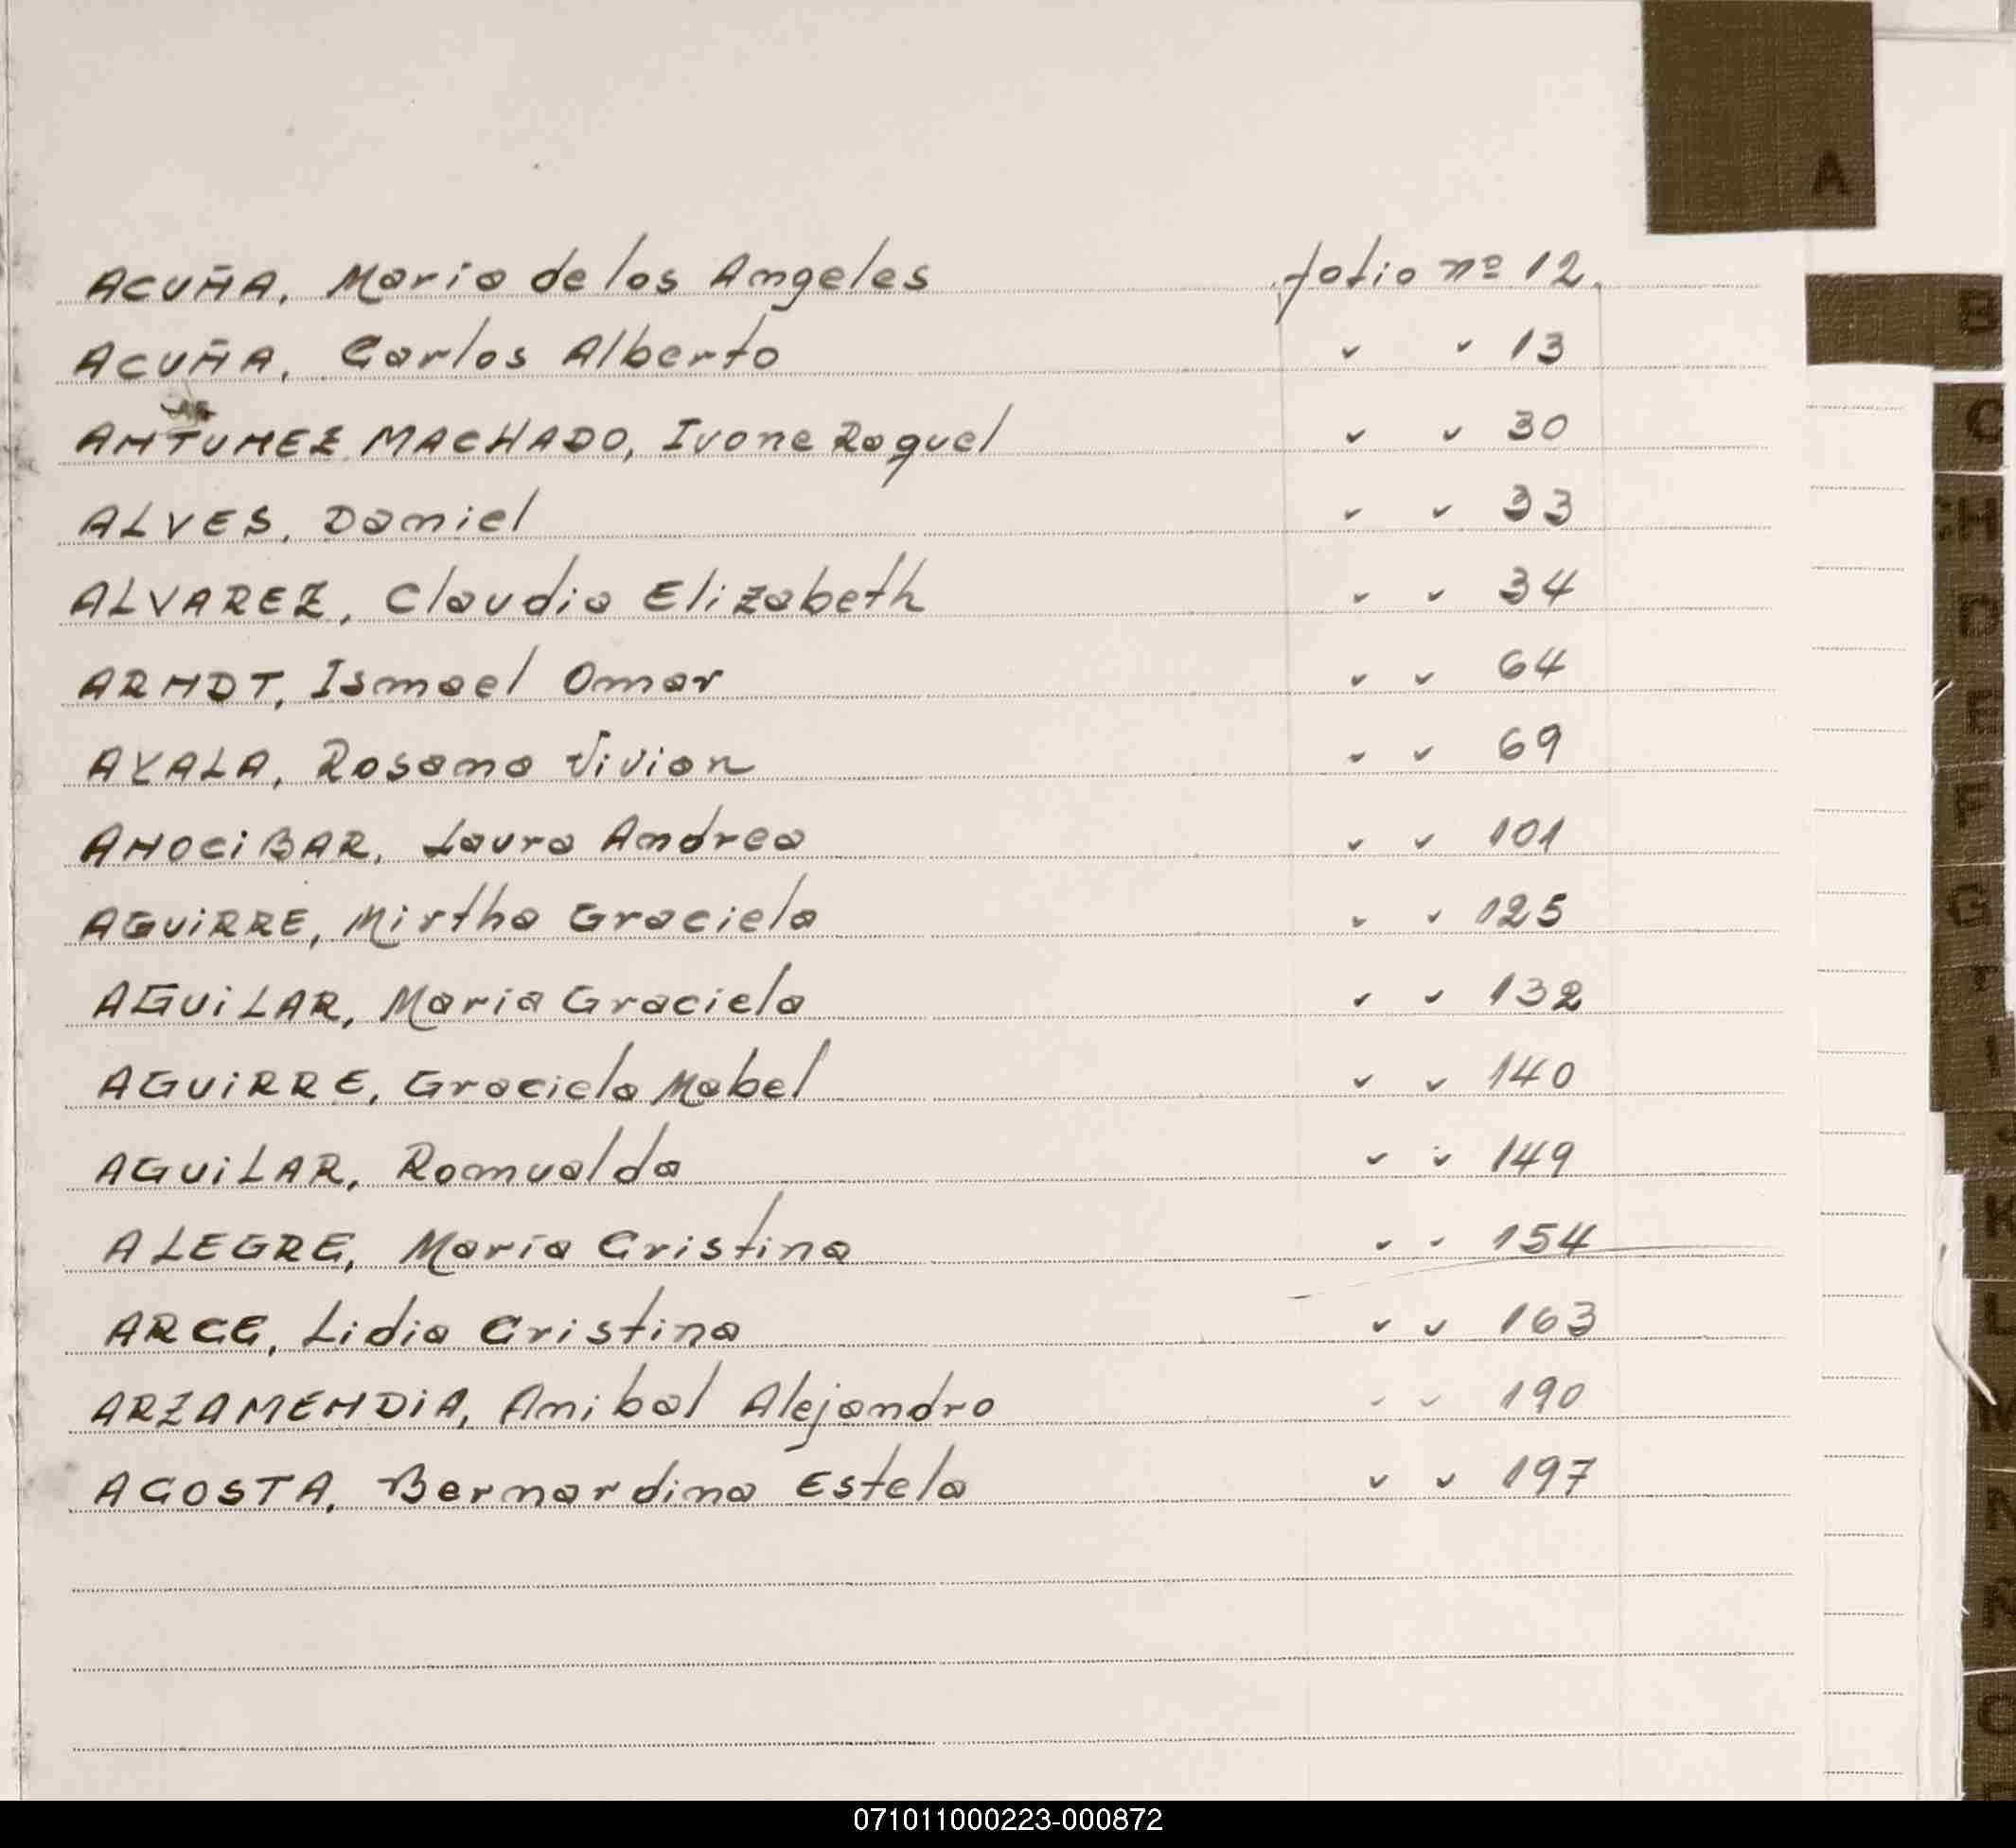 A
ACUÑA, Maria de los Angeles folio nº 12.
ACUÑA, Carlos Alberto " " 13
ANTUNEZ MACHADO, Ivone Raquel " " 30
ALVES, Daniel " " 33
ALVAREZ, Claudia Elizabeth " " 34
ARNDT, Ismael Omar " " 64
AYALA, Rosana Vivian " " 69
ANOCiBAR, Laura Andrea " " 101
AGUiRRE, Mirtha Graciela " " 125
AGUiLAR, Maria Graciela " " 132
AGUiRRE, Graciela Mabel " " 140
AGUiLAR, Romualda " " 149
ALEGRE, María Cristina " " 154
ARCE, Lidia Cristina " " 163
ARZAMENDiA, Anibal Alejandro " " 190
ACOSTA, Bernardina Estela " " 197
B
C
CH
D
E
F
G
I
J
K
L
M
N
O
071011000223-000872